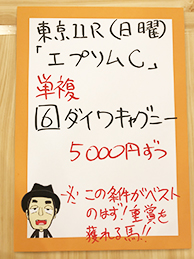 東京11R(日曜)
「エプソムC」
単複
6 ダイワキャグニー
5000円ずつ
※この条件がベスト
のはず!重賞を
獲れる馬!!